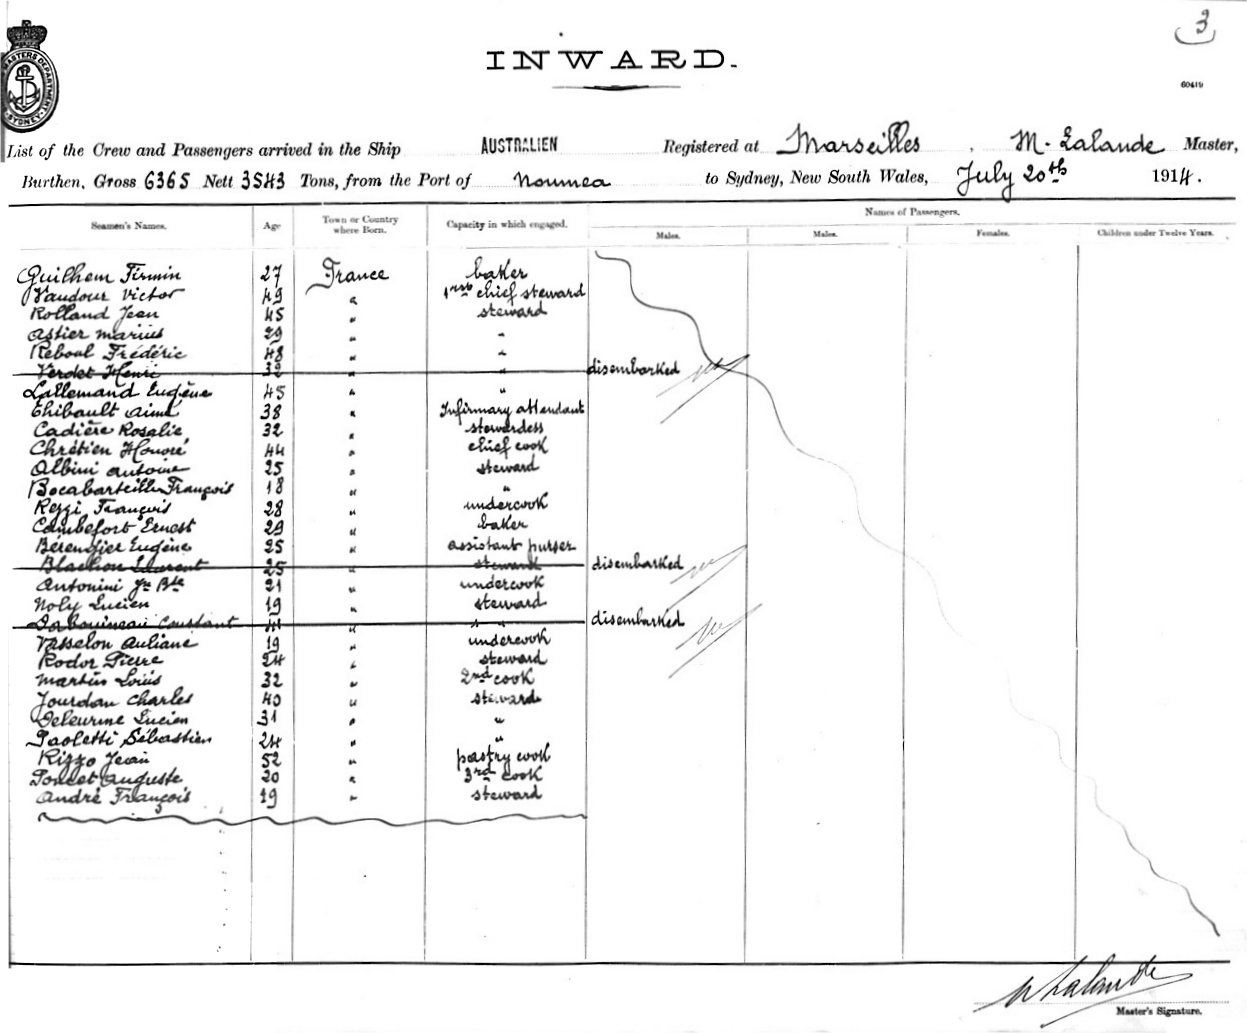 3
INWARD.
MASTERS DEPARTMENT SYDNEY
60419
List of the Crew and Passengers arrived in the Ship AUSTRALIEN Registered at Marseilles, M. Lalande Master,
Burthen, Gross 6365 Nett 3543 Tons, from the Port of Noumea to Sydney, New South Wales, July 20th 1914.
Seamen's Names. Age Town or Country where Born. Capacity in which engaged. Names of Passengers.
Males. Males. Females. Children under Twelve Years.
Guilhem Firmin 27 France baker
Vaudour Victor 49 " 1rst chief steward
Rolland Jean 45 " steward
Astier Marius 29 " "
Reboul Frédéric 48 " "
Verdet Henri 32 " " disembarked
Lallemand Eugène 45 " "
Thibault Aimé 38 " Infirmary attendant
Cadière Rosalie 32 " stewardess
Chrétien Honoré 44 " chief cook
Albini Antoine 25 " steward
François 18 " "
Rezzi François 28 " undercook
Cambefort Ernest 29 " baker
Bérengier Eugène 25 " assistant purser
Blachon Laurent 25 " steward disembarked
Antonini Jn Bte 21 " undercook
Noly Lucien 19 " steward
Constant 41 " " disembarked
Vasselon 19 " undercook
Rodor Pierre 24 " steward
Martin Louis 32 " 2nd cook
Jourdan Charles 40 " steward
Lucien 31 " "
Paoletti Sébastien 24 " "
Rizzo Jean 52 " pastry cook
Poncet Auguste 20 " 3rd cook
André François 19 " steward
M Lalande
Master's Signature.